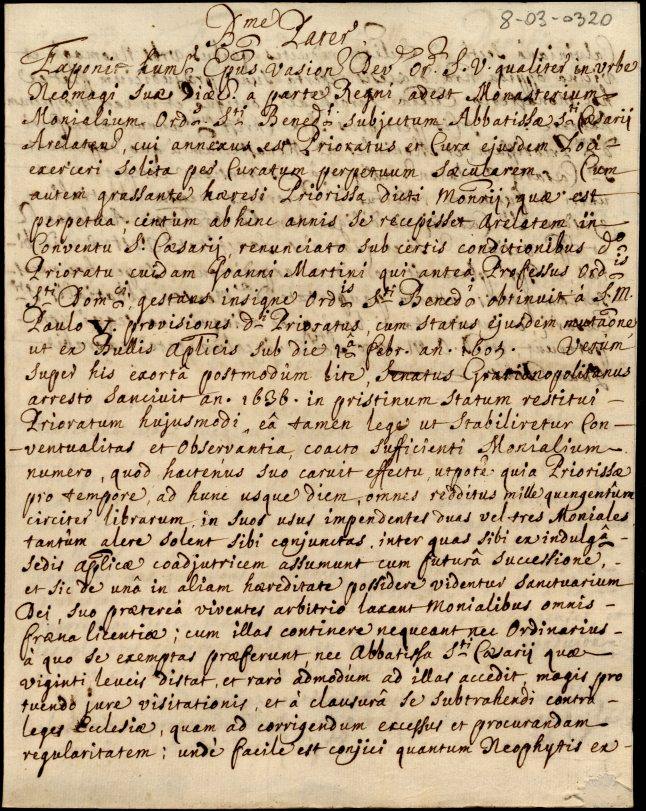 8-03-0320
Bme Pater
Exponit humr Epus Vasion. Dev. Or. S. V. qualiter in urbe
Neomagi suæ Diæc. a parte Regni, adest Monasterium
Monialium Ord. Sti Bened. subjectum Abbatissæ Sti Cæsarij
Arelaten, cui annexus est Prioratus et Cura ejusdem Loci
exerceri solita per Curatum perpetuum sæcularem. Cum
autem grassante hæresi Priorissa dicti Monrij, quæ est
perpetua, centum abhinc annis se recepisset Arelatem in
Conventu S. Cæsarij, renunciato sub certis conditionibus do
Prioratu cuidam Joanni Martini qui anteà Professus Ordis
Sti Domci gestans insigne Ordis Sti Bened. obtinuit à S. M.
Paulo V. provisiones dti Prioratus, cum status ejusdem mutaone
ut ex Bullis Aplicis sub die Febr. an. 1605. Verùm
super his exortâ postmodùm lite, Senatus Gratianopolitanus
arresto sancivit an. 1636. in pristinum statum restitui
Prioratum hujusmodi, eâ tamen lege ut stabiliretur Con-
ventualitas et Observantia, coacto sufficienti Monialium
numero, quòd hactenùs suo caruit effectu, utpotè quia Priorissæ
pro tempore, ad hunc usque diem, omnes redditus mille quengentùm
circiter librarum, in suos usus impendentes duas vel tres Moniales
tantùm alere solent sibi conjunctas, inter quas sibi ex indulga
sedis Aplicæ coadjutricem assumunt cum futurâ successione,
et sic de unâ in aliam hæreditate possidere videntur sanctuarium
Dei, suo prætereà viventes arbitrio laxant Monialibus omnis
fræna licentiæ; cum illas continere nequeant nec Ordinarius
à quo se exemptas præferunt, nec Abbatissa Sti Cæsarij quæ
viginti leucis distat, et rarò admodùm ad illas accedit, magis pro
tuendo jure visitationis, et à clausurâ se subtrahendi contra
leges Ecclesiæ, quam ad corrigendum excessus et procurandam
regularitatem; undè facile est conjici quantum Neophytis ex-